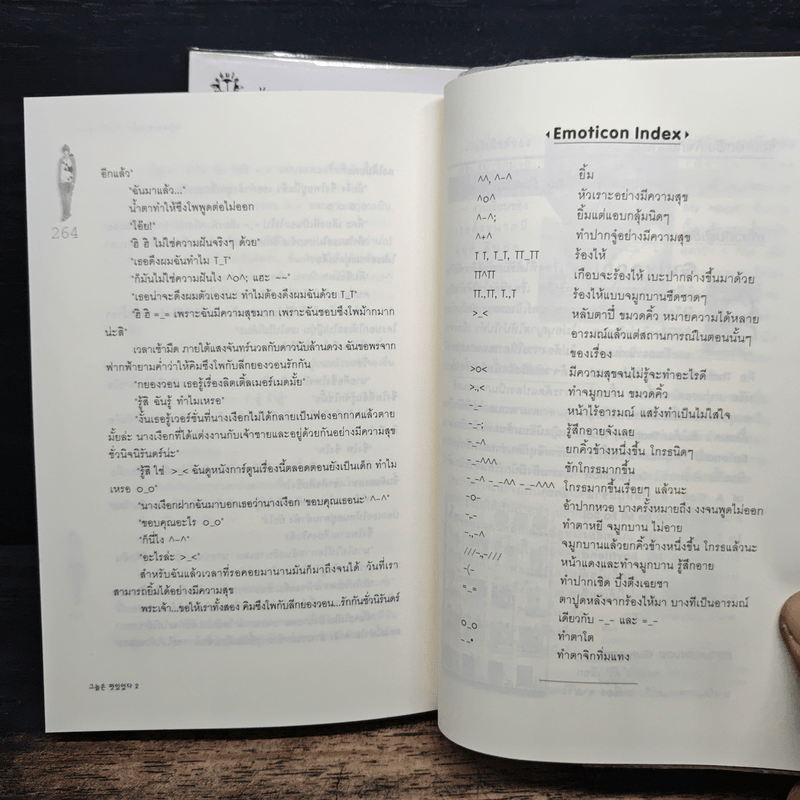 อีกแล้ว"
"ฉันมาแล้ว..."
น้ำตาทำให้ซึงโพพูดต่อไม่ออก
"โอ๊ย!"
"ฮิ ฮิ ไม่ใช่ความฝันจริงๆ ด้วย"
"เธอดึงผมฉันทำไม T_T"
"ก็มันไม่ใช่ความฝันไง ^o^; แฮะ ~~"
"เธอน่าจะดึงผมตัวเองนะ ทำไมต้องดึงผมฉันด้วย T_T"
"ฮิ ฮิ =_= เพราะฉันมีความสุขมาก เพราะฉันชอบซึงโพม้ากมาก
น่ะสิ"
เวลาเช้ามืด ภายใต้แสงจันทร์นวลกับดาวนับล้านดวง ฉันขอพรจาก
ฟากฟ้ายามค่ำว่าให้คิมซึงโพกับลีกยองวอนรักกัน
"กยองวอน เธอรู้เรื่องลิตเติ้ลเมอร์เมดมั้ย"
"รู้สิ ฉันรู้ ทำไมเหรอ"
"งั้นเธอรู้เวอร์ชั่นที่นางเงือกไม่ได้กลายเป็นฟองอากาศแล้วตาย
มั้ยล่ะ นางเงือกที่ได้แต่งงานกับเจ้าชายและอยู่ด้วยกันอย่างมีความสุข
ชั่วนิจนิรันดร์น่ะ"
"รู้สิ ใช่ >_< ฉันดูหนังการ์ตูนเรื่องนี้ตลอดตอนยังเป็นเด็ก ทำไม
เหรอ o_o"
"นางเงือกฝากฉันมาบอกเธอว่านางเงือก 'ขอบคุณเธอน่ะ' ^-^"
"ขอบคุณอะไร o_o"
"ก็นี่ไง ^-^"
"อะไรล่ะ >_<"
สำหรับฉันแล้วเวลาที่รอคอยมานานมันก็มาถึงจนได้ วันที่เรา
สามารถยิ้มได้อย่างมีความสุข
พระเจ้า...ขอให้เราทั้งสอง คิมซึงโพกับลีกยองวอน...รักกันชั่วนิรันดร์
264
그놈은 멋있었다 2
Emoticon Index
^^, ^-^ ยิ้ม
^o^ หัวเราะอย่างมีความสุข
^-^; ยิ้มแต่แอบกลุ้มนิดๆ
^+^ ทำปากจู๋อย่างมีความสุข
T T, T_T, TT_TT ร้องไห้
TT^TT เกือบจะร้องไห้ เบะปากล่างขึ้นมาด้วย
TT.,TT, T.,T ร้องไห้แบบจมูกบานซืดซาดๆ
>_< หลับตาปี๋ ขมวดคิ้ว หมายความได้หลาย
อารมณ์แล้วแต่สถานการณ์ในตอนนั้นๆ
ของเรื่อง
>o< มีความสุขจนไม่รู้จะทำอะไรดี
>.,< ทำจมูกบาน ขมวดคิ้ว
-_- หน้าไร้อารมณ์ แสร้งทำเป็นไม่ใส่ใจ
-_-; รู้สึกอายจังเลย
-_-^ ยกคิ้วข้างหนึ่งขึ้น โกรธนิดๆ
-_-^^^ ชักโกรธมากขึ้น
-_-^ -_-^^ -_-^^^ โกรธมากขึ้นเรื่อยๆ แล้วนะ
-o- อ้าปากหวอ บางครั้งหมายถึง งงจนพูดไม่ออก
-,.- ทำตาหยี จมูกบาน ไม่อาย
-.,-^ จมูกบานแล้วยกคิ้วข้างหนึ่งขึ้น โกรธแล้วนะ
///-,.-/// หน้าแดงและทำจมูกบาน รู้สึกอาย
-(- ทำปากเชิด บึ้งตึงเฉยชา
=_= ตาปูดหลังจากร้องไห้มา บางทีเป็นอารมณ์
เดียวกับ -_- และ =_-
o_o ทำตาโต
--* ทำตาจิกทิ่มแทง